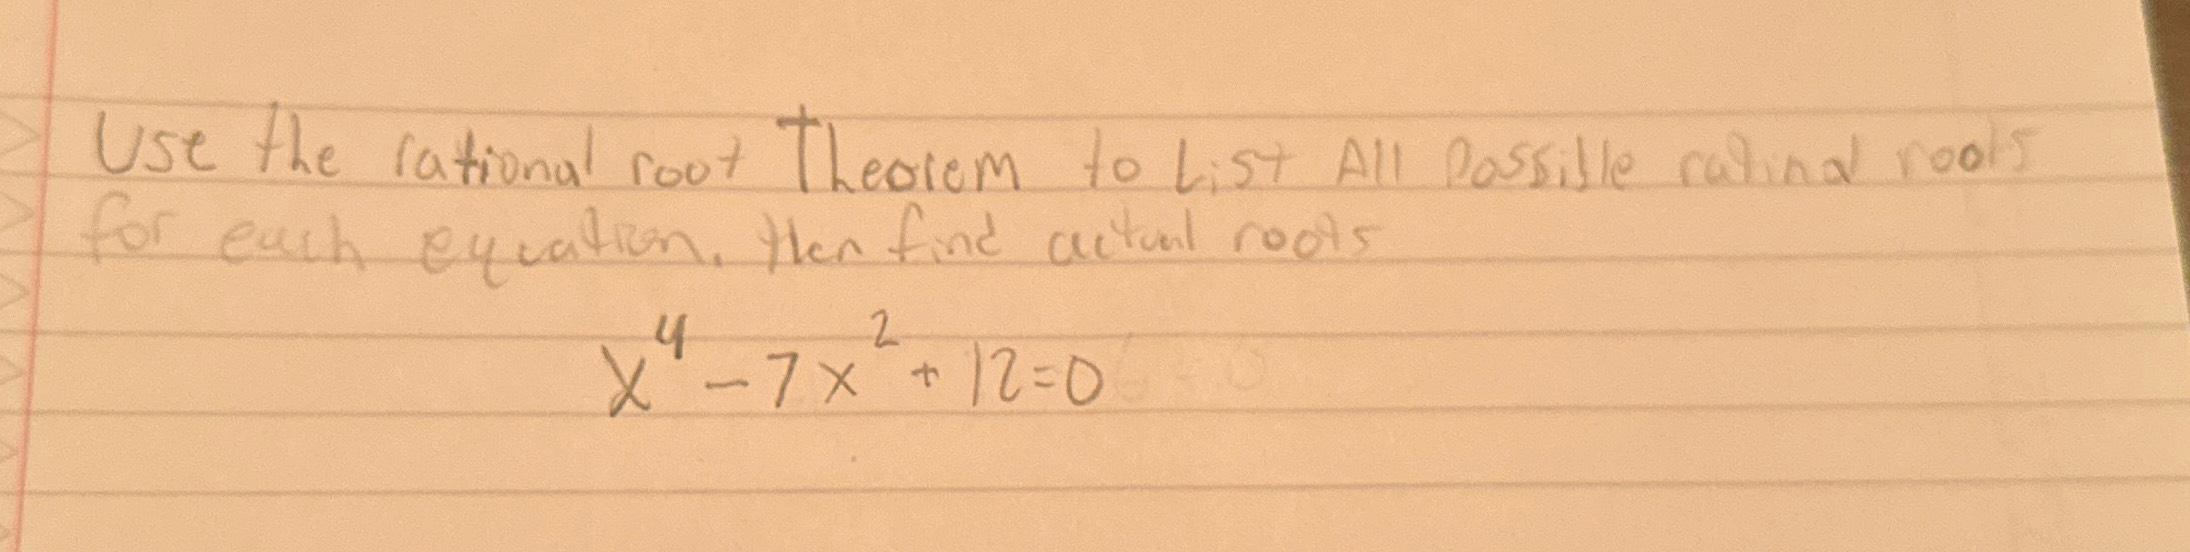 Use the rational root Theorem to List All Possible ratinal roots
for each equation. then find actual roots
x⁴ - 7x² + 12 = 0